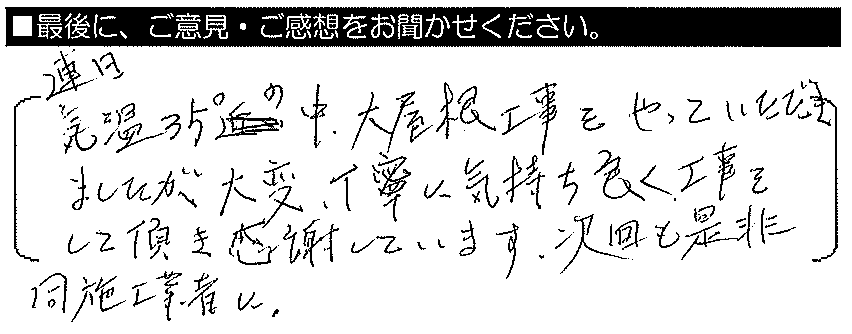 ■最後に、ご意見・ご感想をお聞かせください。
連日
気温35°の中、大屋根工事をやっていただき
ましたが、大変、丁寧に気持ち良く工事を
して頂き感謝しています。次回も是非
同施工業者に。